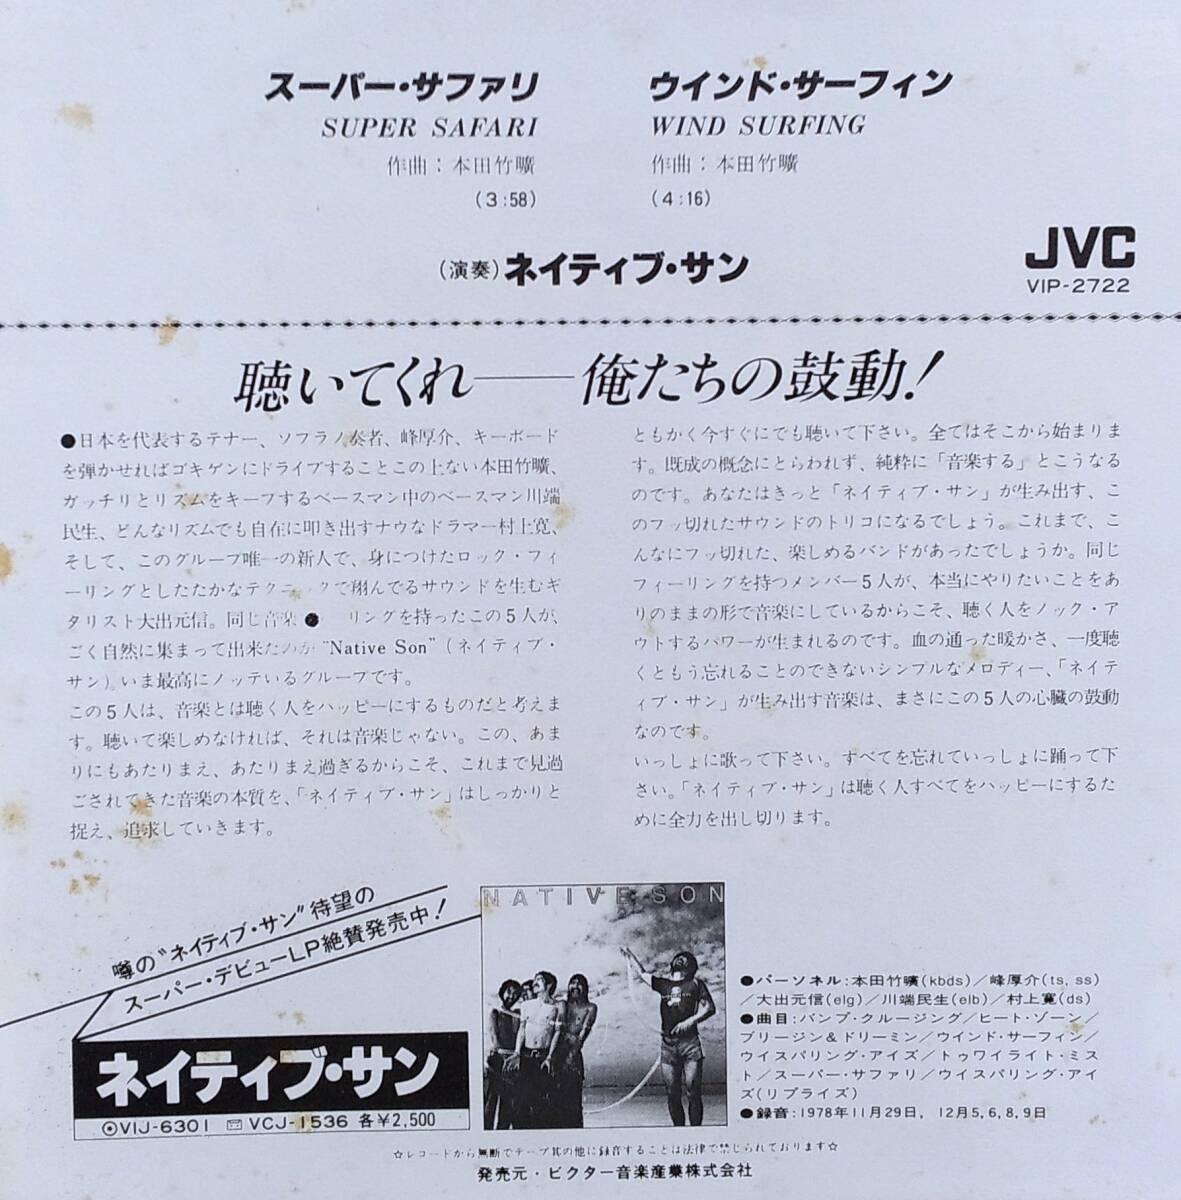 スーパー・サファリ
SUPER SAFARI
作曲：本田竹曠
(3:58)
ウインド・サーフィン
WIND SURFING
作曲：本田竹曠
(4:16)
(演奏)ネイティブ・サン
JVC
VIP-2722
聴いてくれ──俺たちの鼓動！
●日本を代表するテナー、ソプラノ奏者、峰厚介、キーボード
を弾かせればゴキゲンにドライブすることこの上ない本田竹曠、
ガッチリとリズムをキープするベースマン中のベースマン川端
民生、どんなリズムでも自在に叩き出すナウなドラマー村上寛、
そして、このグループ唯一の新人で、身につけたロック・フィ
ーリングとしたたかなテクニックで翔んでるサウンドを生むギ
タリスト大出元信。同じ音楽 リングを持ったこの5人が、
ごく自然に集まって出来たのが“Native Son”（ネイティブ・
サン）。いま最高にノッテいるグループです。
この5人は、音楽とは聴く人をハッピーにするものだと考えま
す。聴いて楽しめなければ、それは音楽じゃない。この、あま
りにもあたりまえ、あたりまえ過ぎるからこそ、これまで見過
ごされてきた音楽の本質を、「ネイティブ・サン」はしっかりと
捉え、追求していきます。
ともかく今すぐにでも聴いて下さい。全てはそこから始まりま
す。既成の概念にとらわれず、純粋に「音楽する」とこうなる
のです。あなたはきっと「ネイティブ・サン」が生み出す、こ
のフッ切れたサウンドのトリコになるでしょう。これまで、こ
んなにフッ切れた、楽しめるバンドがあったでしょうか。同じ
フィーリングを持つメンバー5人が、本当にやりたいことをあ
りのままの形で音楽にしているからこそ、聴く人をノック・ア
ウトするパワーが生まれるのです。血の通った暖かさ、一度聴
くともう忘れることのできないシンプルなメロディー、「ネイテ
ィブ・サン」が生み出す音楽は、まさにこの5人の心臓の鼓動
なのです。
いっしょに歌って下さい。すべてを忘れていっしょに踊って下
さい。「ネイティブ・サン」は聴く人すべてをハッピーにするた
めに全力を出し切ります。
噂の“ネイティブ・サン”待望の
スーパー・デビューLP絶賛発売中！
ネイティブ・サン
VIJ-6301 VCJ-1536 各¥2,500
NATIVE SON
●パーソネル：本田竹曠(kbds)／峰厚介(ts, ss)
／大出元信(elg)／川端民生(elb)／村上寛(ds)
●曲目：バンプ・クルージング／ヒート・ゾーン／
ブリージン＆ドリーミン／ウインド・サーフィン／
ウイスパリング・アイズ／トゥワイライト・ミス
ト／スーパー・サファリ／ウイスパリング・アイ
ズ(リプライズ)
●録音：1978年11月29日，12月5,6,8,9日
☆レコードから無断でテープ其の他に録音することは法律で禁じられております☆
発売元・ビクター音楽産業株式会社